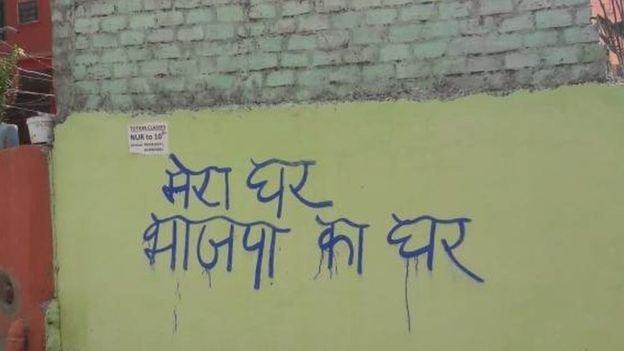 TUTION CLASSES
NUR to 10th
मेरा घर
भाजपा का घर